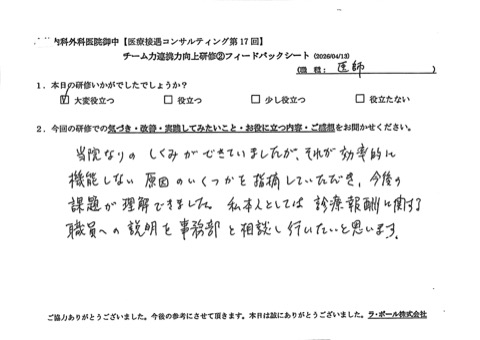 内科外科医院御中【医療接遇コンサルティング第17回】
チーム力連携力向上研修②フィードバックシート (2026/04/13)
(職種: 医師 )
1．本日の研修いかがでしたでしょうか？
☑大変役立つ □役立つ □少し役立つ □役立たない
2．今回の研修での気づき・改善・実践してみたいこと・お役に立つ内容・ご感想をお聞かせください。
当院なりの しくみができていましたが、それが効率的に
機能しない 原因のいくつかを指摘していただき、今後の
課題が理解できました。私本人としては 診療報酬に関する
職員への説明を事務部と相談し行いたいと思います。
ご協力ありがとうございました。今後の参考にさせて頂きます。本日は誠にありがとうございました。ラ・ポール株式会社